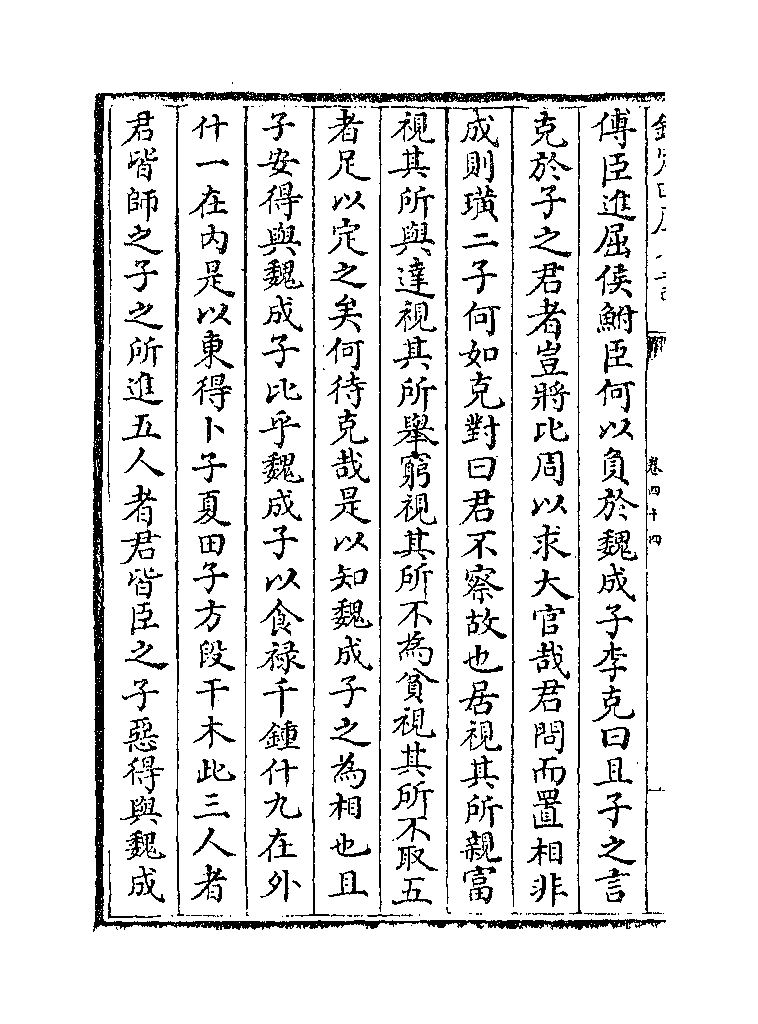 卷四十四
傅臣進屈侯鮒臣何以負於魏成子李克曰且子之言
克於子之君者豈將比周以求大官哉君問而置相非
成則璜二子何如克對曰君不察故也居視其所親富
視其所與達視其所舉窮視其所不為貧視其所不取五
者足以定之矣何待克哉是以知魏成子之為相也且
子安得與魏成子比乎魏成子以食祿千鍾什九在外
什一在內是以東得卜子夏田子方段干木此三人者
君皆師之子之所進五人者君皆臣之子惡得與魏成